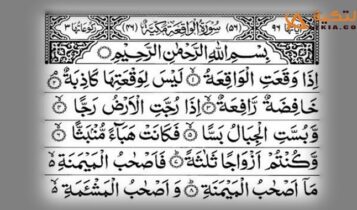 اٰیاتها ٩٦ (٥٦) سُوْرَةُ الْوَاقِعَةِ مَكِّیَّةٌ (٤٦) رکوعاتها ٣
بِسْمِ اللّٰهِ الرَّحْمٰنِ الرَّحِیْمِ
اِذَا وَقَعَتِ الْوَاقِعَةُ ۙ۝١ لَیْسَ لِوَقْعَتِهَا كَاذِبَةٌ ۘ۝٢
خَافِضَةٌ رَّافِعَةٌ ۙ۝٣ اِذَا رُجَّتِ الْاَرْضُ رَجًّا ۙ۝٤
وَّ بُسَّتِ الْجِبَالُ بَسًّا ۙ۝٥ فَكَانَتْ هَبَآءً مُّنْۢبَثًّا ۙ۝٦
وَّ كُنْتُمْ اَزْوَاجًا ثَلٰثَةً ؕ۝٧ فَاَصْحٰبُ الْمَیْمَنَةِ ۙ۬
مَاۤ اَصْحٰبُ الْمَیْمَنَةِ ؕ۝٨ وَ اَصْحٰبُ الْمَشْـَٔمَةِ ۙ۬